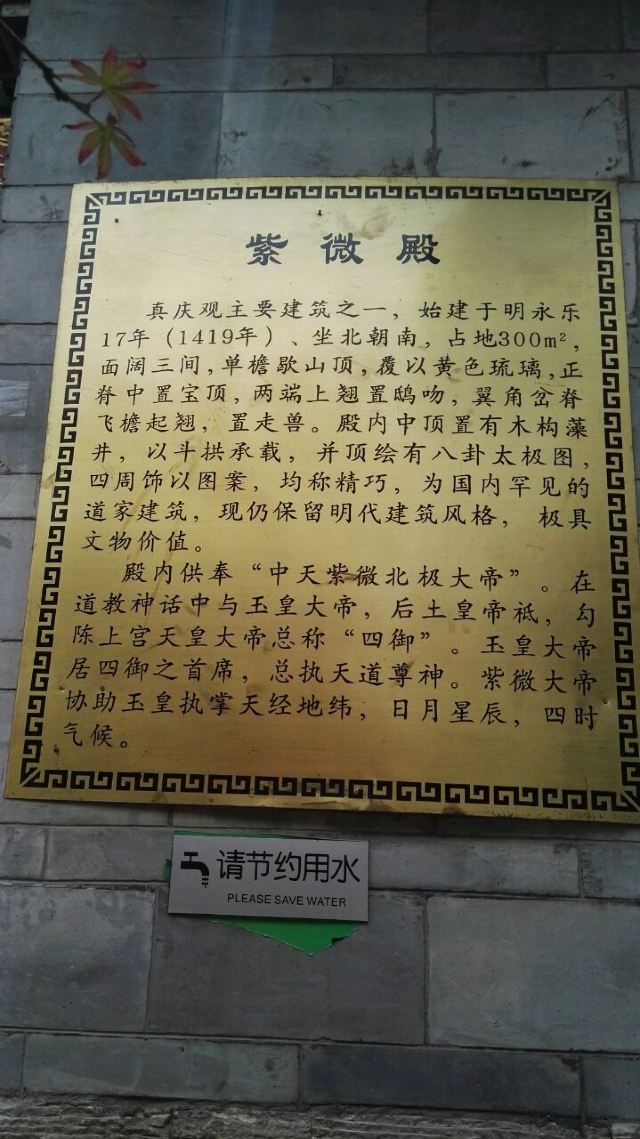 紫微殿
真庆观主要建筑之一，始建于明永乐
17年（1419年）、坐北朝南，占地300m²，
面阔三间，单檐歇山顶，覆以黄色琉璃，正
脊中置宝顶，两端上翘置鸱吻，翼角岔脊
飞檐起翘，置走兽。殿内中顶置有木构藻
井，以斗拱承载，并顶绘有八卦太极图，
四周饰以图案，均称精巧，为国内罕见的
道家建筑，现仍保留明代建筑风格，极具
文物价值。
殿内供奉“中天紫微北极大帝”。在
道教神话中与玉皇大帝，后土皇帝祗，勾
陈上宫天皇大帝总称“四御”。玉皇大帝
居四御之首席，总执天道尊神。紫微大帝
协助玉皇执掌天经地纬，日月星辰，四时
气候。
请节约用水
PLEASE SAVE WATER